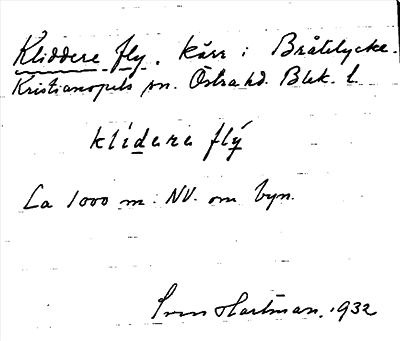 Kliddere fly. kärr i Bråtelycke.
Kristianopels sn. Östra hd. Blek. l.
klidara flý
Ca 1000 m. NV. om byn.
Sven Hartman. 1932